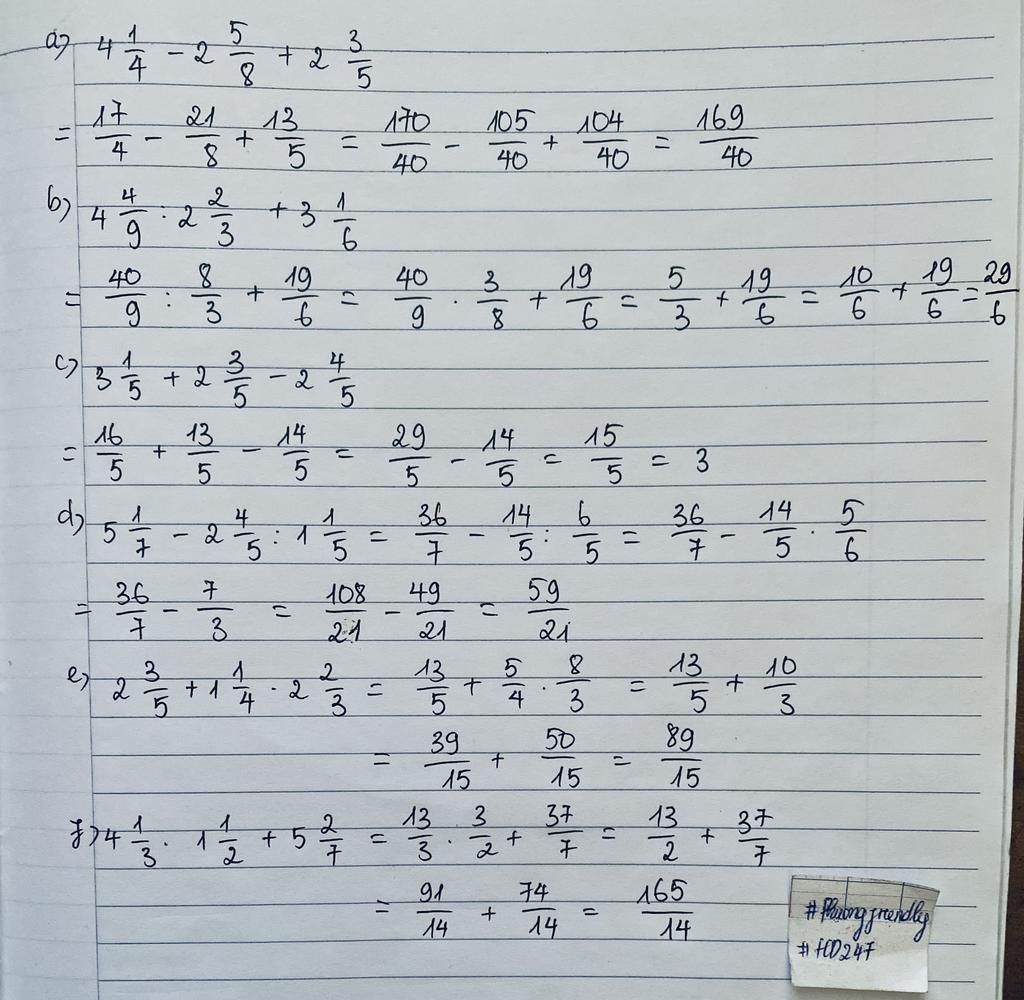 a) 4 1/4 - 2 5/8 + 2 3/5
= 17/4 - 21/8 + 13/5 = 170/40 - 105/40 + 104/40 = 169/40
b) 4 4/9 : 2 2/3 + 3 1/6
= 40/9 : 8/3 + 19/6 = 40/9 . 3/8 + 19/6 = 5/3 + 19/6 = 10/6 + 19/6 = 29/6
c) 3 1/5 + 2 3/5 - 2 4/5
= 16/5 + 13/5 - 14/5 = 29/5 - 14/5 = 15/5 = 3
d) 5 1/7 - 2 4/5 : 1 1/5 = 36/7 - 14/5 : 6/5 = 36/7 - 14/5 . 5/6
= 36/7 - 7/3 = 108/21 - 49/21 = 59/21
e) 2 3/5 + 1 1/4 . 2 2/3 = 13/5 + 5/4 . 8/3 = 13/5 + 10/3
= 39/15 + 50/15 = 89/15
f) 4 1/3 . 1 1/2 + 5 2/7 = 13/3 . 3/2 + 37/7 = 13/2 + 37/7
= 91/14 + 74/14 = 165/14
#Phuongfriendly
#HD247